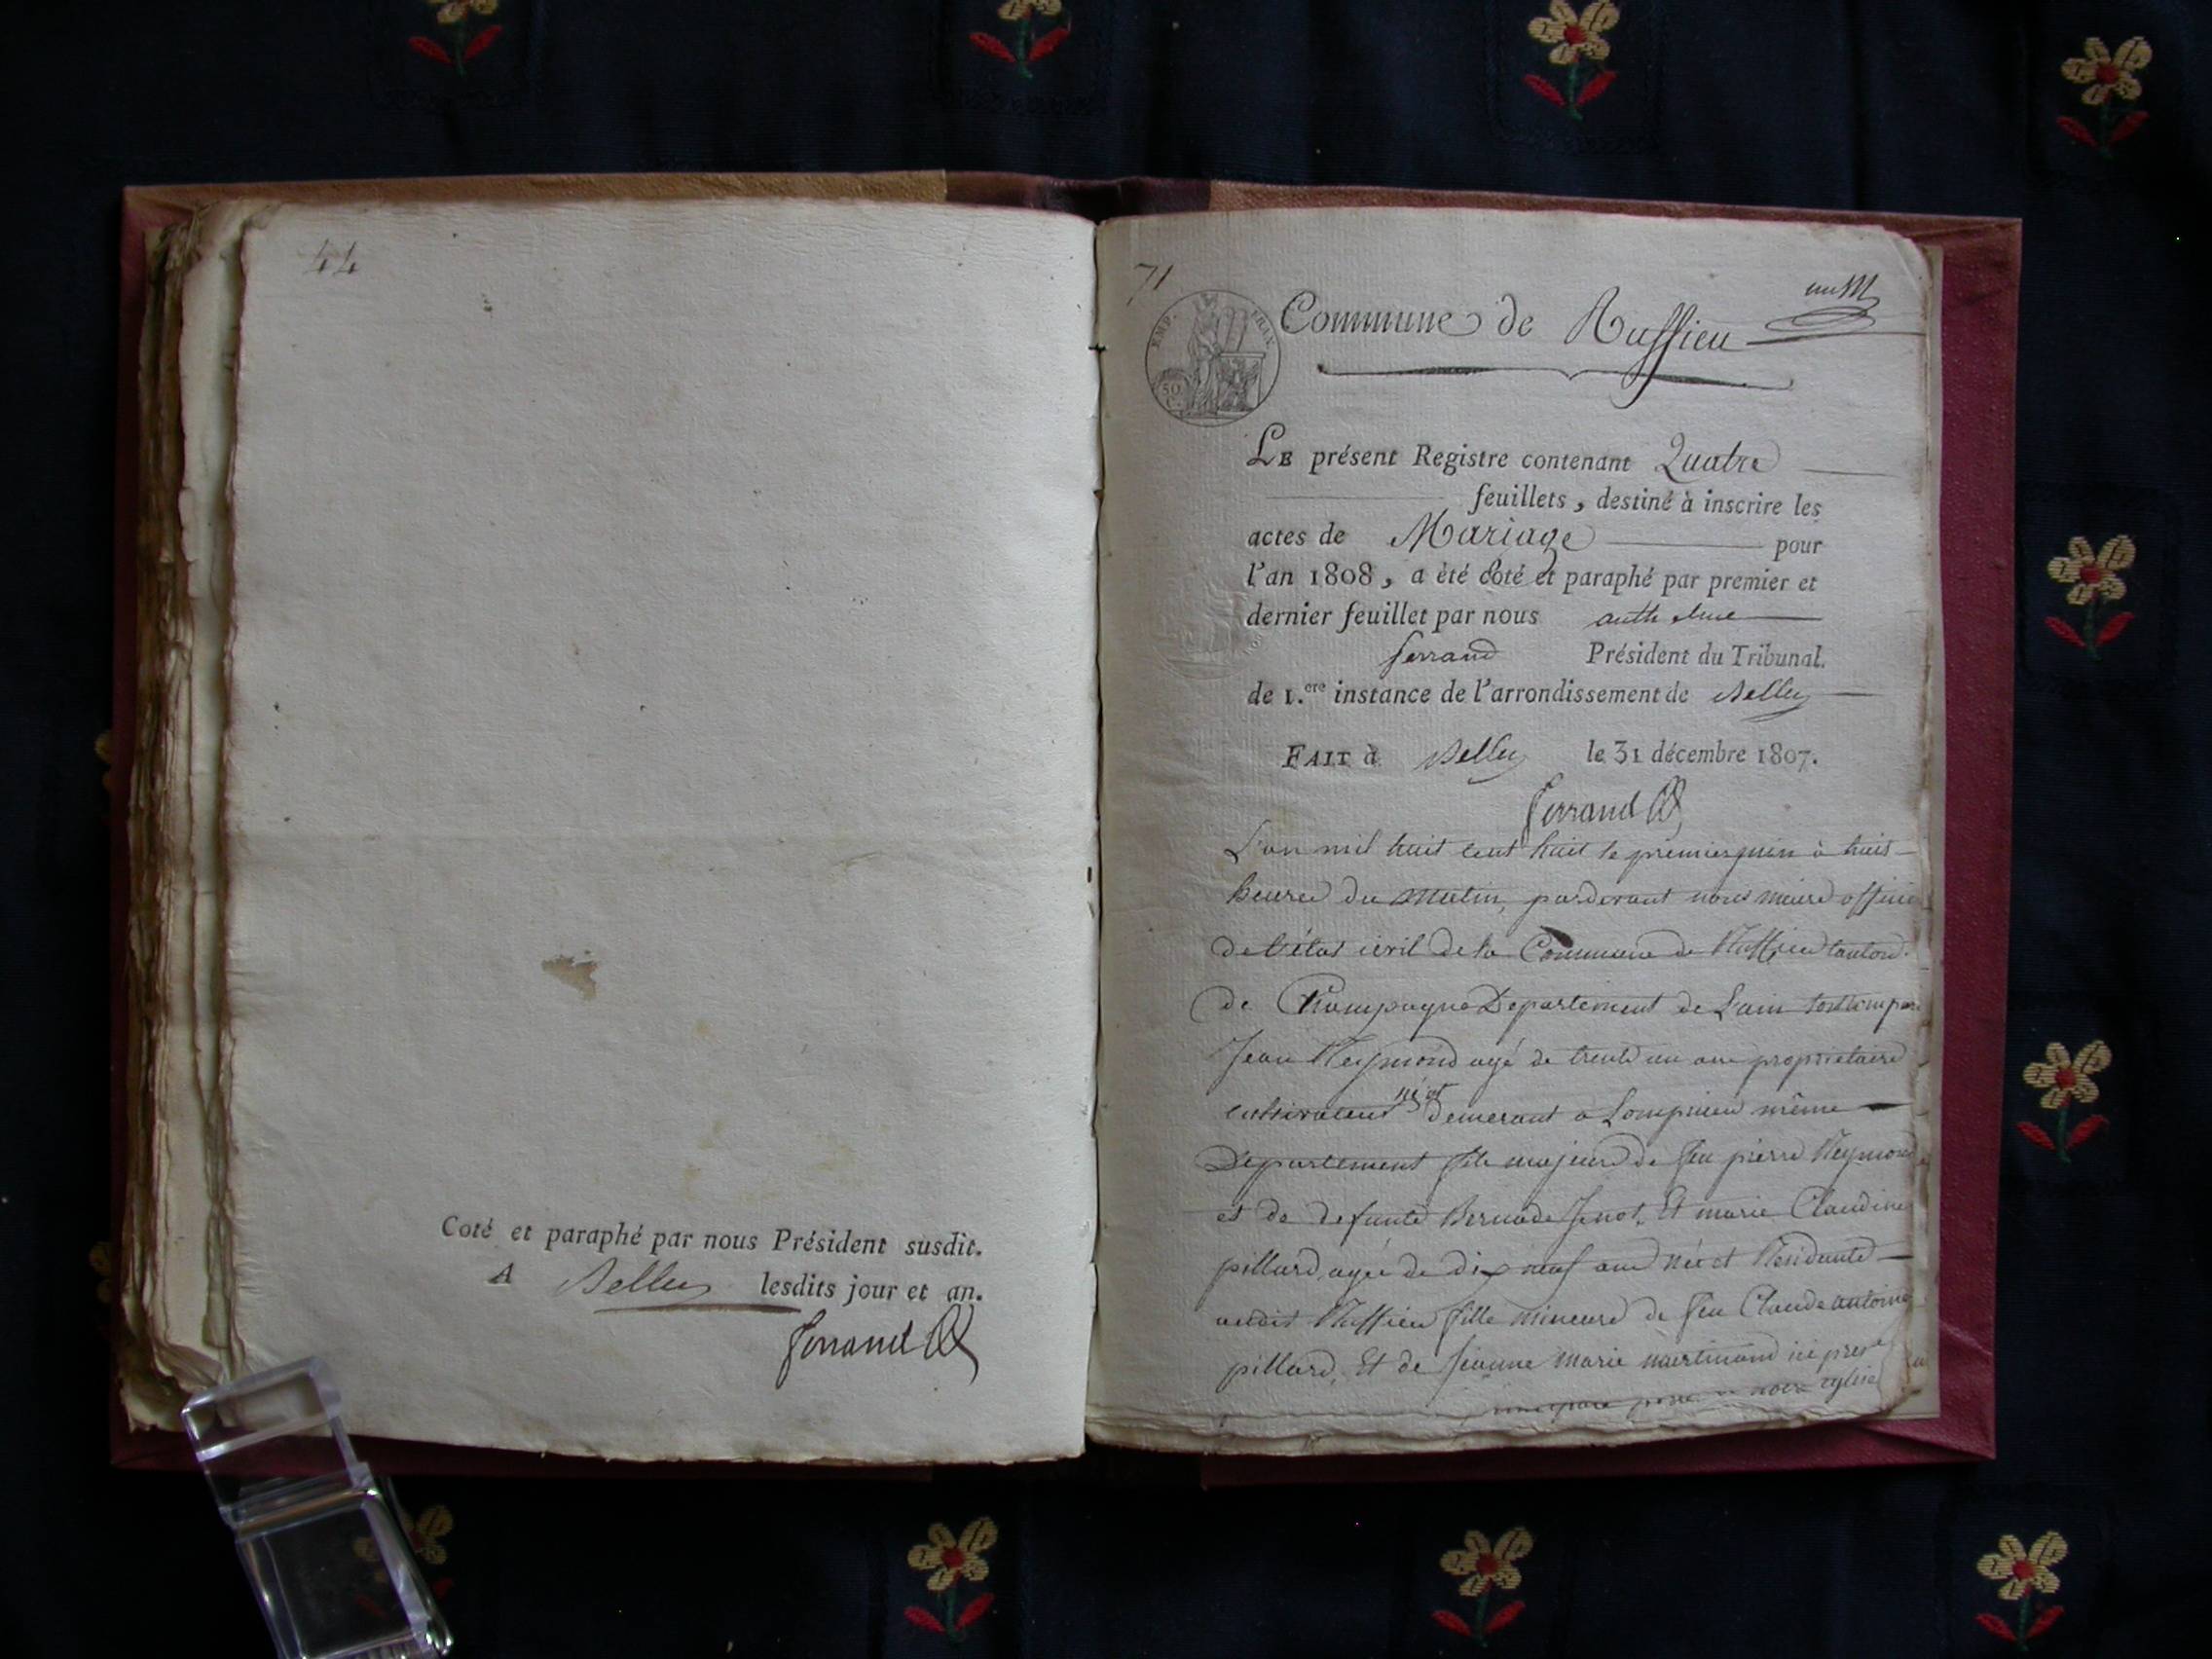 44
Coté et paraphé par nous Président susdit.
A Belley lesdits jour et an.
Ferrand
71
Commune de Ruffieu
EMP. FRAN.
50 C.
LE présent Registre contenant Quatre
feuillets, destiné à inscrire les
actes de Mariage pour
l'an 1808, a été coté et paraphé par premier et
dernier feuillet par nous anthelme
ferrand Président du Tribunal.
de 1.ere instance de l'arrondissement de Belley
FAIT à Belley le 31 décembre 1807.
Ferrand
L'an mil huit cent huit le premier juin à huit
heures du matin, pardevant nous maire officier
de l'état civil de la Commune de Ruffieu Canton
de Champagne Departement de L'ain sont
Jean Reymond agé de trente un ans proprietaire
cultivateur né et demeurant a Lompnieu même
Departement fils majeur de feu pierre Reymond
et de defunte Bernarde Et marie Claudine
pillard, agée de dix neuf ans née et Residante
audit Ruffieu fille mineure de feu Claude antoine
pillard, Et de jeanne marie martinand ici